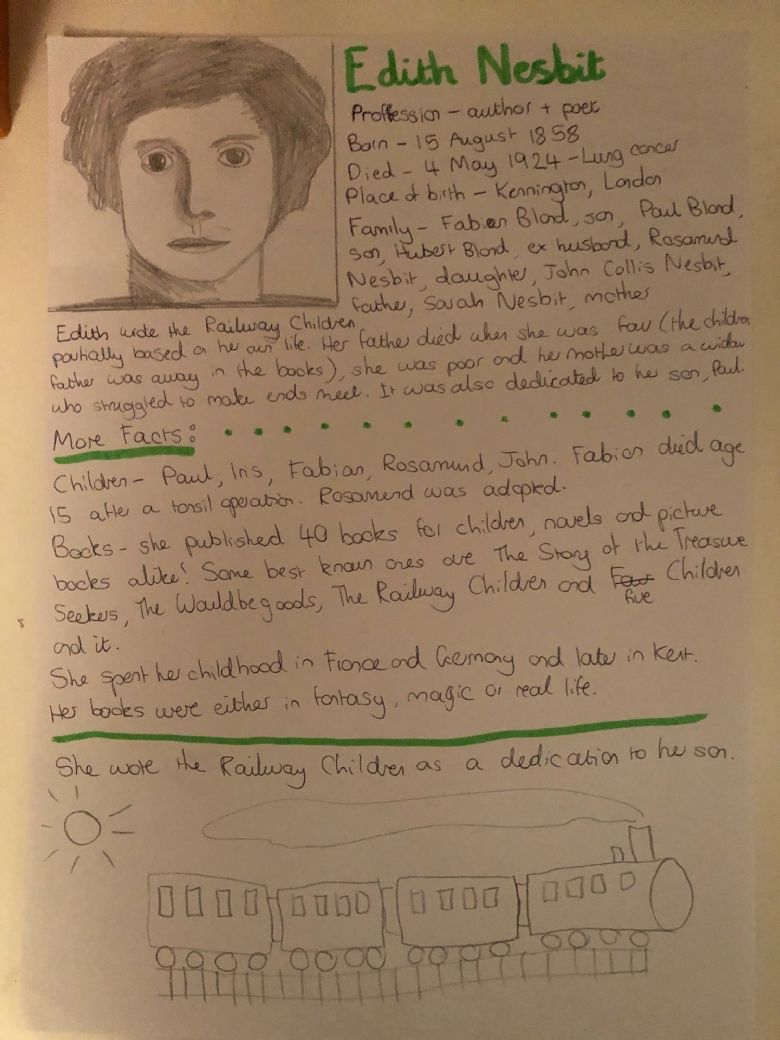 Edith Nesbit
Proffession - author + poet
Born - 15 August 1858
Died - 4 May 1924 - Lung cancer
Place of birth - Kennington, London
Family - Fabian Bland, son, Paul Bland,
son, Hubert Bland, ex husband, Rosamund
Nesbit, daughter, John Collis Nesbit,
father, Sarah Nesbit, mother
Edith wrote the Railway Children
partially based on her own life. Her father died when she was four (the children
father was away in the books), she was poor and her mother was a widow
who struggled to make ends meet. It was also dedicated to her son, Paul.
More Facts:
Children - Paul, Iris, Fabian, Rosamund, John. Fabian died age
15 after a tonsil operation. Rosamund was adopted.
Books - she published 40 books for children, novels and picture
books alike! Some best known ones are The Story of the Treasure
Seekers, The Wouldbegoods, The Railway Children and Four Children
five
and it.
She spent her childhood in France and Germany and later in Kent.
Her books were either in fantasy, magic or real life.
She wrote the Railway Children as a dedication to her son.